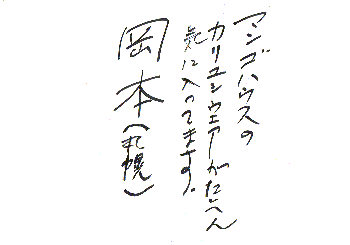 マンゴハウスの
カリユシウエアーがたいへん
気に入ってます。
岡本(札幌)